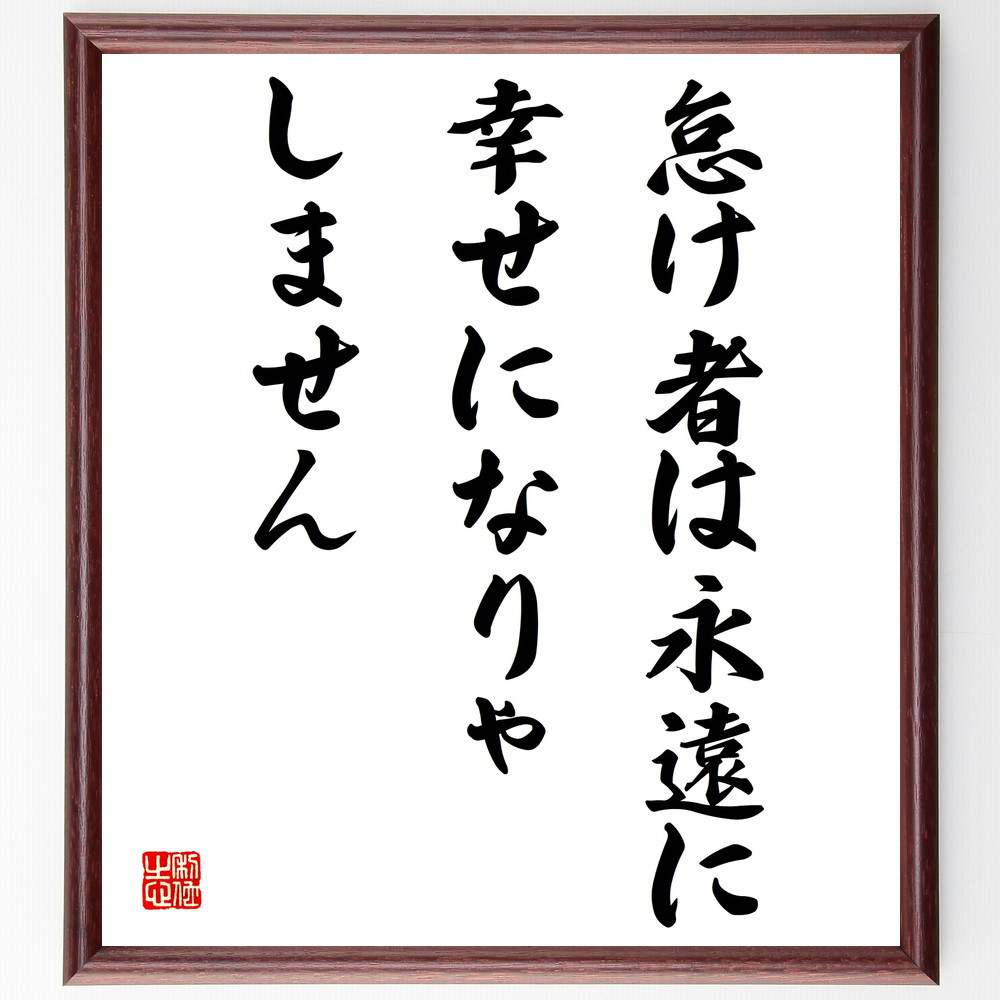 怠け者は永遠に
幸せになりゃ
しません